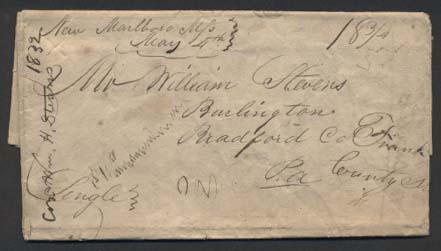 New Marlboro Ms
May 4th
18 3/4
Mr William Stevens
Burlington
Bradford Co
Pa
County
Single
H. Stevens 1832